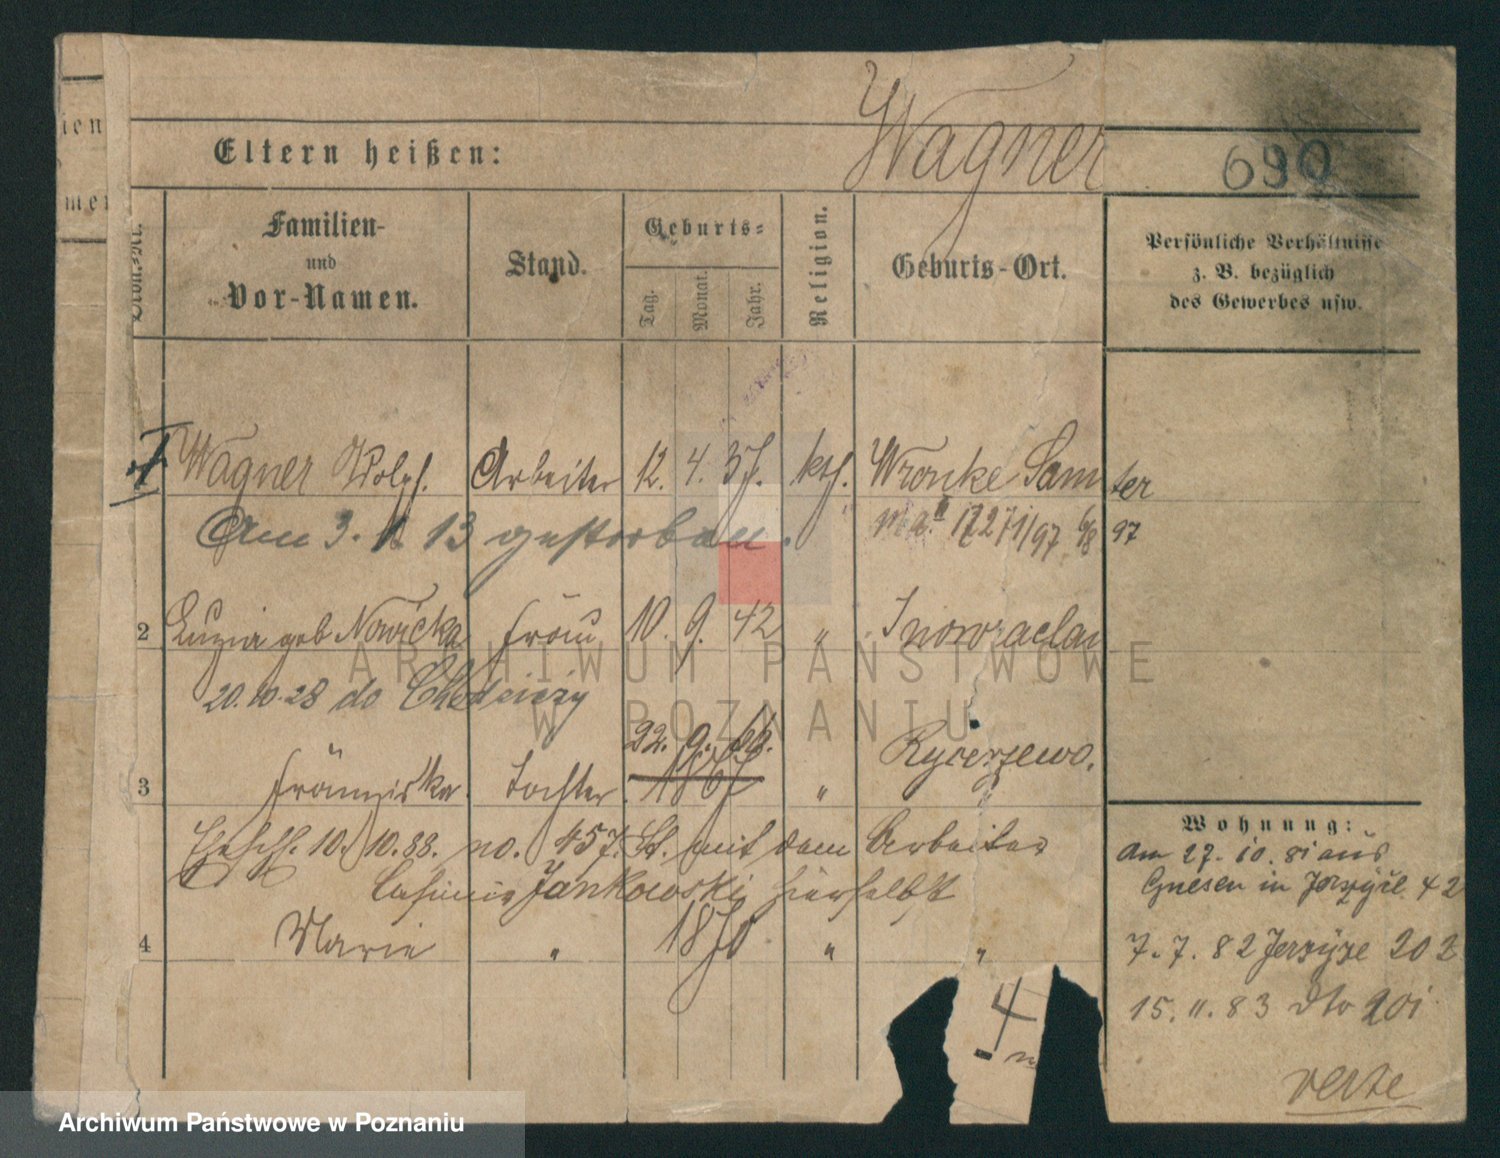 Wagner
690
ien
mer
Eltern heißen:
Ordn.-Nr.
Familien-
und
Vor-Namen.
Stand.
Geburts-
Tag. Monat. Jahr.
Religion.
Geburts-Ort.
Persönliche Verhältnisse
z. B. bezüglich
des Gewerbes usw.
1 Wagner Adolph. Arbeiter 12. 4. 37. kth. Wronke Samter
Am 3. 1 13 gestorben.
12271/97 6/8 97
2 Luzia geb Nowicka Frau 10. 9. 42 " Inowraclaw
20.10.28 do
22. 9. 66.
3 Franziska. Tochter 1867 " Rycerzewo.
Ehesch. 10. 10. 88. no. 457. St. mit dem Arbeiter
Casimir Jankowski hierselbst
4 Marie " 1870 " "
Wohnung:
Am 27. 10. 81 aus
Gnesen in 42
7. 7. 82 Jerzyce 202
15. 11. 83 dto 201
verte
ARCHIWUM PAŃSTWOWE
W POZNANIU
Archiwum Państwowe w Poznaniu